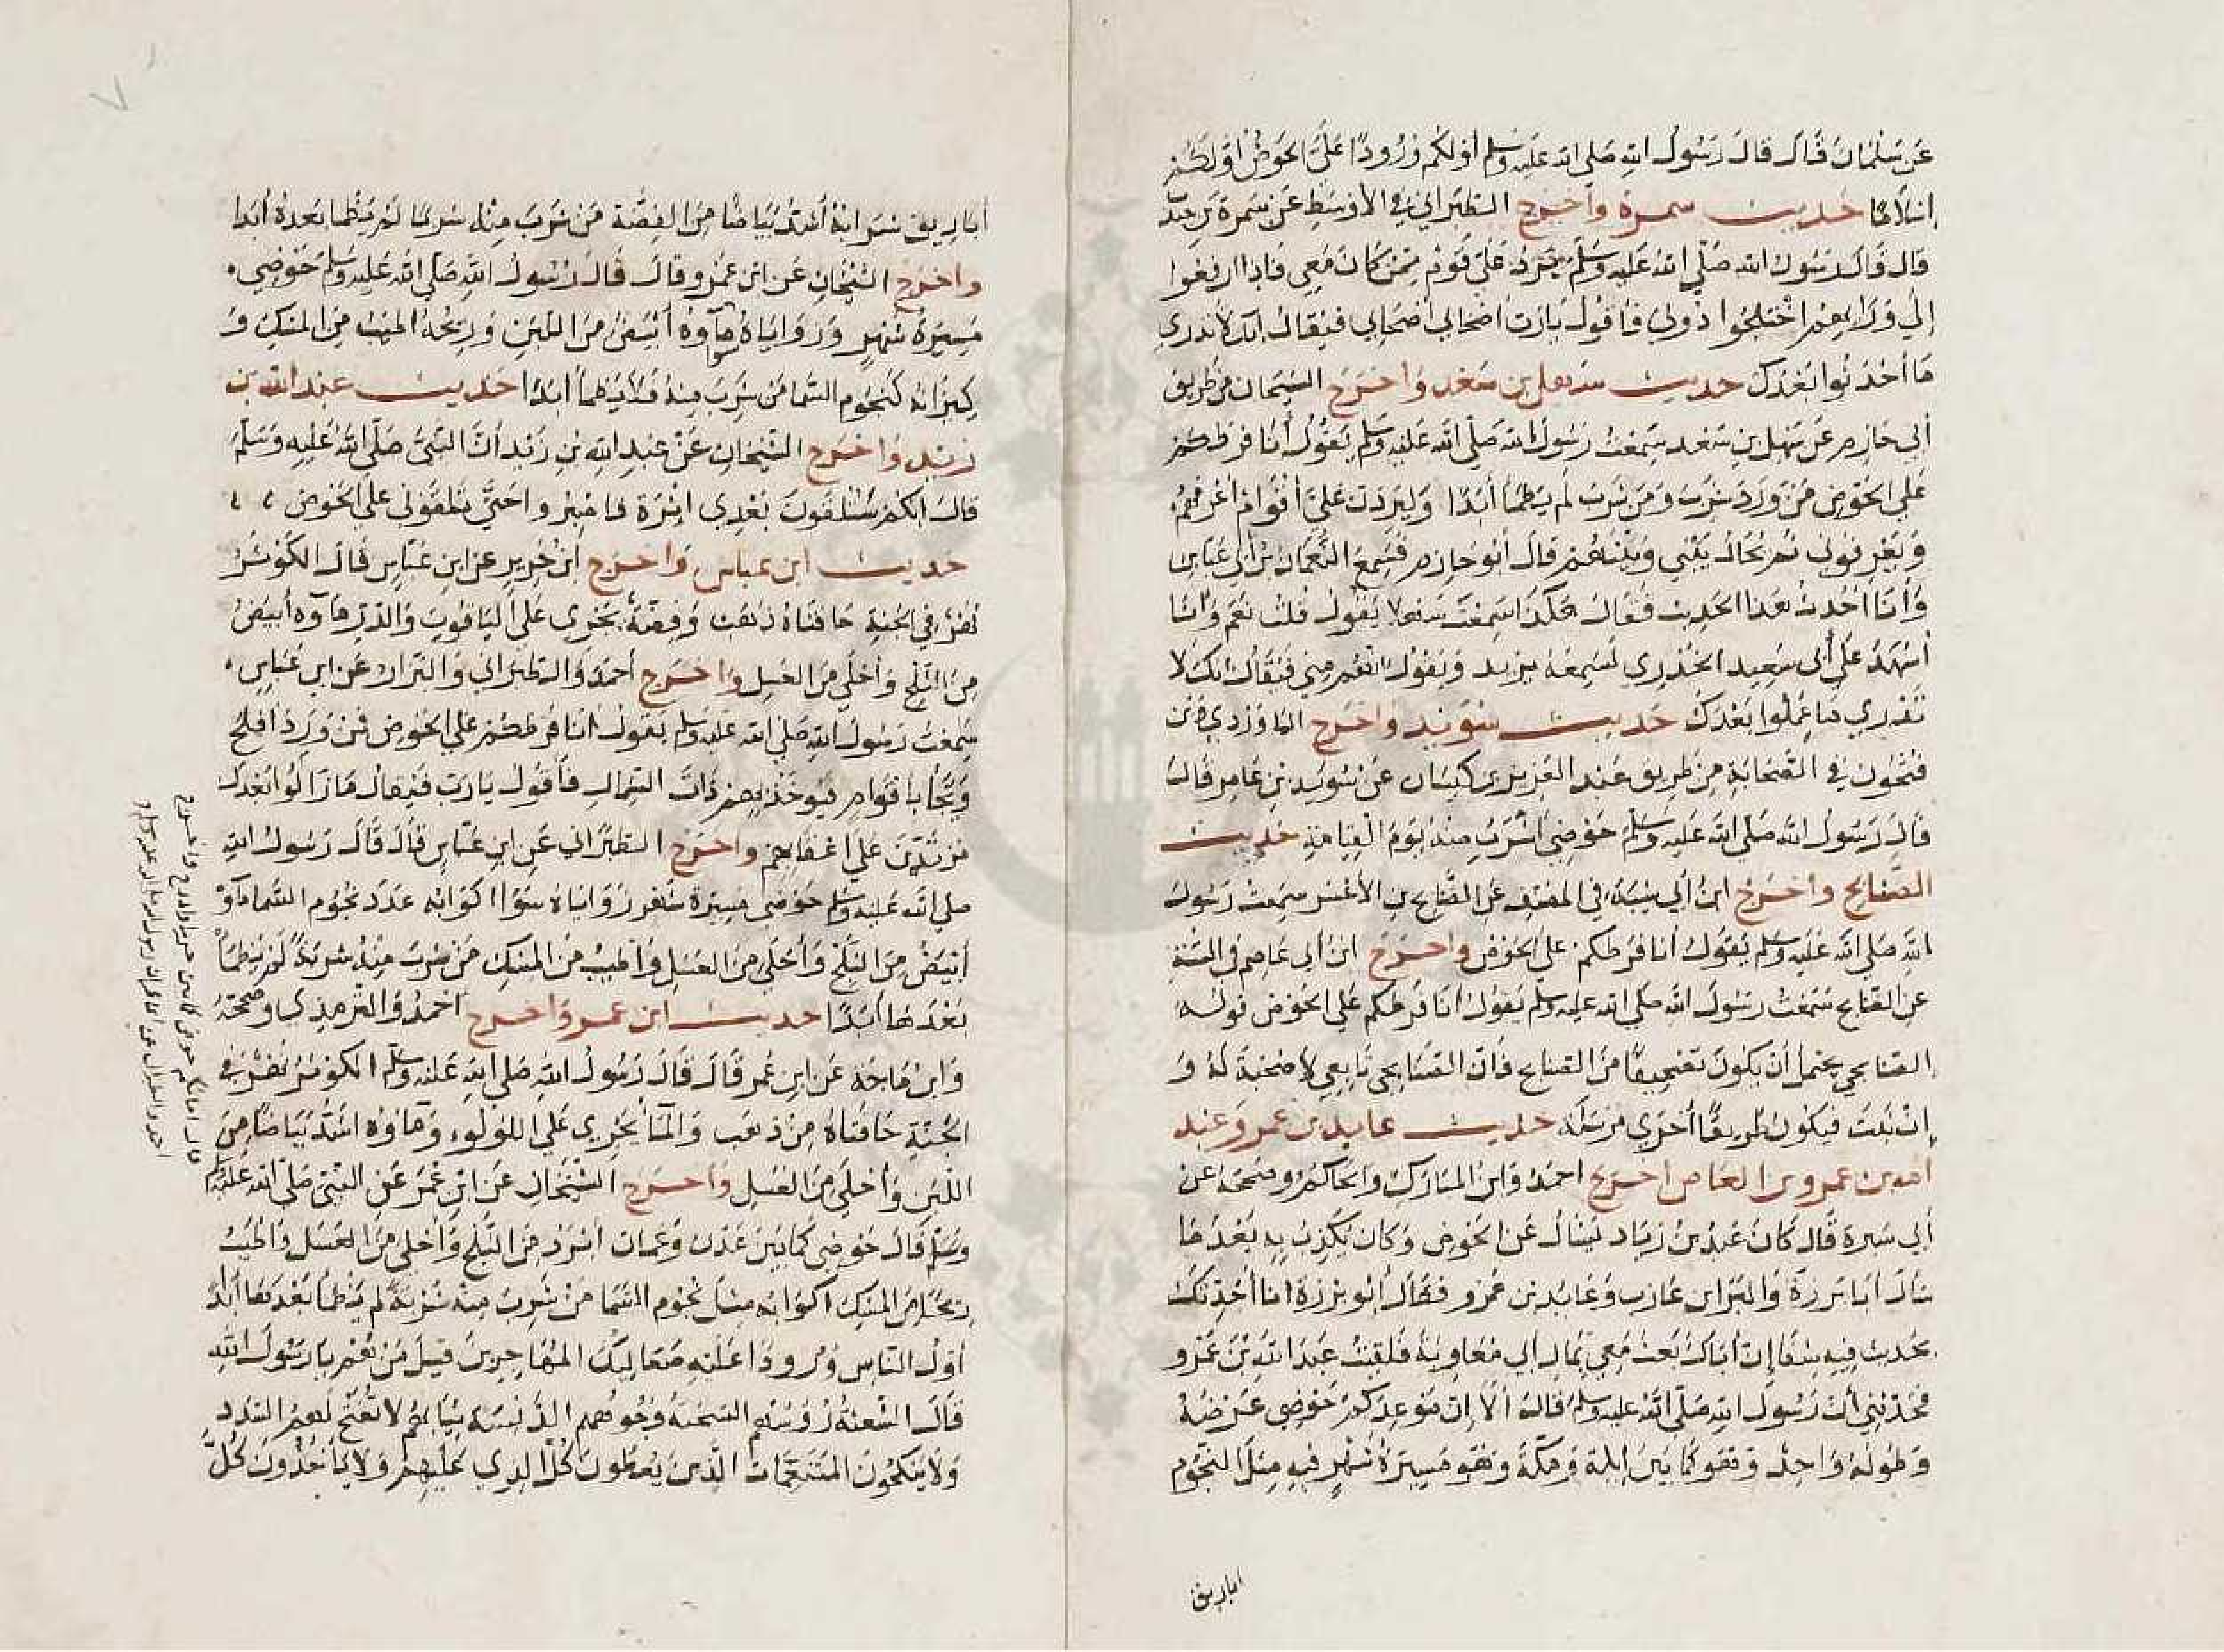 عن سلمان قال قال رسول الله صلى الله عليه وسلم أولكم ورودا على الحوض أولكم
إسلاما حديث سمرة وأخرج الطبراني في الأوسط عن سمرة بن جند
قال قال رسول الله صلى الله عليه وسلم يرد على قوم ممن كان معي فاذا ارفعوا
إلي ورايتهم اختلجوا دوني فأقول يارب أصحابي أصحابي فيقال إنك لا تدري
ما أحدثوا بعدك حديث سهل بن سعد وأخرج الشيخان من طريق
أبي حازم عن سهل بن سعد سمعت رسول الله صلى الله عليه وسلم يقول أنا فرطكم
على الحوض من ورد شرب ومن شرب لم يظمأ أبدا وليردن علي أقوام أعرفهم
ويعرفوني ثم يحال بيني وبينهم قال أبو حازم فسمع النعمان بن أبي عباس
وأنا أحدث هذا الحديث فقال هكذا سمعت سهلا يقول قلت نعم وانا
أشهد على أبي سعيد الخدري لسمعته يزيد ويقول انهم مني فيقال انك لا
تدري ما عملوا بعدك حديث سويد وأخرج الماوردي وابن
فتحون في الصحابة من طريق عبد العزيز بن كيسان عن سويد بن عامر قال
قال رسول الله صلى الله عليه وسلم حوضي أشرب منه يوم القيامة حديث
الصنابح وأخرج ابن أبي شيبة في المصنف عن الصنابح بن الأعسر سمعت رسول
الله صلى الله عليه وسلم يقول أنا فرطكم على الحوض وأخرج ابن أبي عاصم في السنة
عن الصنابح سمعت رسول الله صلى الله عليه وسلم يقول أنا فرطكم على الحوض قوله
الصنابحي يحتمل أن يكون تصحيفا من الصنابح فان الصنابحي تابعي لا صحبة له و
إن ثبت فيكون طريقا أخرى مرسلة حديث عايد بن عمرو وعبد
الله بن عمرو بن العاص أخرج احمد وابن المبارك والحاكم وصححه عن
أبي سبرة قال كان عبد بن زياد يسأل عن الحوض وكان يكذب به بعد ما
سأل أبا برزة والبرا بن عازب وعايد بن عمرو فقال أبو برزة انا أحدثك
بحديث فيه شفا إن أباك بعث معي بمال إلى معاوية فلقيت عبد الله بن عمرو
فحدثني أن رسول الله صلى الله عليه وسلم قال ألا إن موعدكم حوضي عرضه
وطوله واحد وهو كما بين ايلة ومكة وهو مسيرة شهر فيه مثل النجوم
اباريق
أباريق شرابه أشد بياضا من الفضة من شرب منه شربا لم يظما بعده أبدا
وأخرج الشيخان عن ابن عمرو قال قال رسول الله صلى الله عليه وسلم حوضي
مسيرة شهر وزواياه ماوه أبيض من اللبن وريحه أطيب من المسك و
كيزانه كنجوم السما من شرب منه فلا يظمأ أبدا حديث عبد الله بن
زيد وأخرج الشيخان عن عبد الله بن زيد أن النبي صلى الله عليه وسلم
قال انكم ستلقون بعدي اثرة فاصبروا حتى تلقوني على الحوض
حديث ابن عباس وأخرج ابن جرير عن ابن عباس قال الكوثر
نهر في الجنة حافتاه ذهب وفضة يجري على الياقوت والدر ماوه أبيض
من الثلج وأحلى من العسل وأخرج أحمد والطبراني والبزار عن ابن عباس
سمعت رسول الله صلى الله عليه وسلم يقول أنا فرطكم على الحوض فمن ورد أفلح
ويجا بأقوام فيوخذ بهم ذات الشمال فأقول يا رب فيقال ما زالوا بعدك
مرتدين على أعقابهم وأخرج الطبراني عن ابن عباس قال قال رسول الله
صلى الله عليه وسلم حوضي مسيرة شهر زواياه سوا أكوابه عدد نجوم السما ماؤه
أبيض من الثلج وأحلى من العسل وأطيب من المسك من شرب منه شربة لم يظمأ
بعدها أبدا حديث ابن عمر وأخرج أحمد والترمذي وصححه
وابن ماجه عن ابن عمر قال قال رسول الله صلى الله عليه وسلم الكوثر نهر في
الجنة حافتاه من ذهب والما يجري على اللولو وماوه اشد بياضا من
اللبن وأحلى من العسل وأخرج الشيخان عن ابن عمر عن النبي صلى الله عليه
وسلم قال حوضي كما بين عدن وعمان أبرد من الثلج وأحلى من العسل وأطيب
ريحا من المسك أكوابه مثل نجوم السما من شرب منه شربة لم يظمأ بعدها أبدا
أول الناس ورودا عليه صعاليك المهاجرين قيل من هم يا رسول الله
قال الشعثة روسهم الشحبة وجوههم الدنسة ثيابهم لا تفتح لهم السدد
ولا ينكحون المتنعمات الذين يعطون كل الذي عليهم ولا يأخذون كل